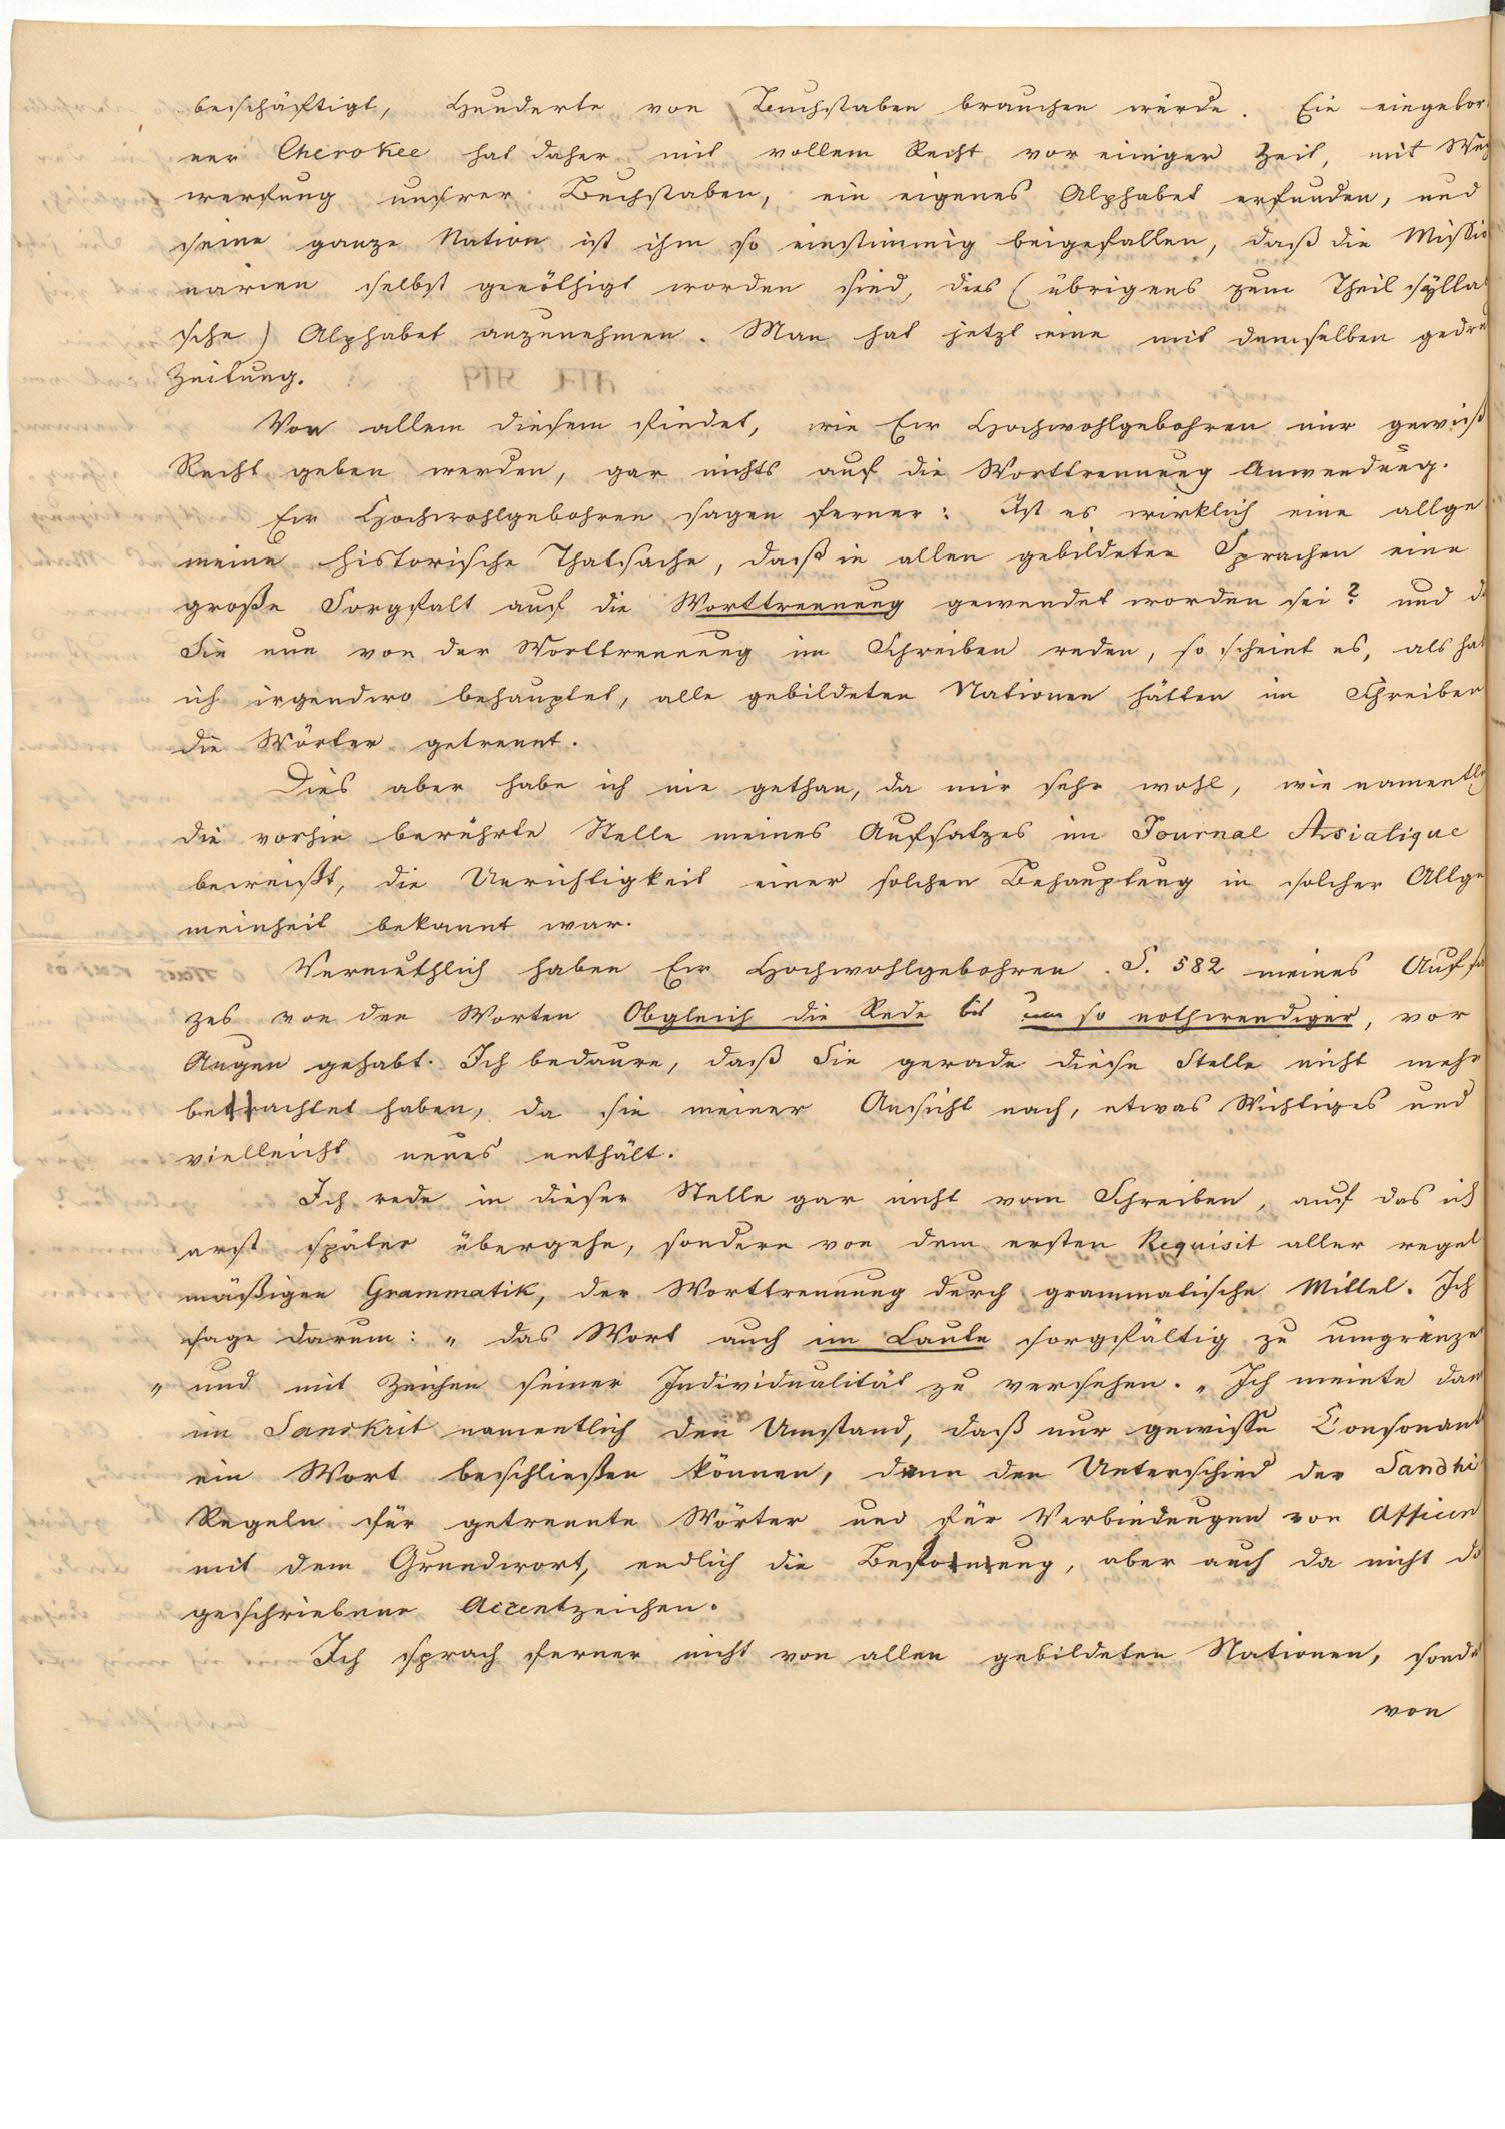 beschäftigt, Hunderte von Buchstaben brauchen würde. Ein eingebor
ner Cherokee hat daher mit vollem Recht vor einiger Zeit, mit Weg
werfung unsrer Buchstaben, ein eigenes Alphabet erfunden, und
seine ganze Nation ist ihm so einstimmig beigefallen, daß die Missio
narien selbst genöthigt worden sind, dies (übrigens zum Theil sylla
sche) Alphabet anzunehmen. Man hat jetzt eine mit demselben gedru
Zeitung.
Von allem diesem findet, wie Ew Hochwohlgebohren mir gewiß
Recht geben werden, gar nichts auf die Worttrennung Anwendung.
Ew Hochwohlgebohren sagen ferner: Ist es wirklich eine allge
meine historische Thatsache, daß in allen gebildeten Sprachen eine
große Sorgfalt auf die Worttrennung gewendet worden sei? und d
Sie nun von der Worttrennung im Schreiben reden, so scheint es, als hät
ich irgendwo behauptet, alle gebildeten Nationen hätten im Schreiben
die Wörter getrennt.
Dies aber habe ich nie gethan, da mir sehr wohl, wie namentli
die vorhin berührte Stelle meines Aufsatzes im Journal Asiatique
beweißt, die Unrichtigkeit einer solchen Behauptung in solcher Allge
meinheit bekannt war.
Vermuthlich haben Ew Hochwohlgebohren S. 582 meines Aufsa
zes von den Worten Obgleich die Rede bis um so nothwendiger, vor
Augen gehabt. Ich bedaure, daß Sie gerade diese Stelle nicht mehr
betrachtet haben, da sie meiner Ansicht nach, etwas Wichtiges und
vielleicht neues enthält.
Ich rede in dieser Stelle gar nicht vom Schreiben, auf das ich
erst später übergehe, sondern von dem ersten Requisit aller regel
mäßigen Grammatik, der Worttrennung durch grammatische Mittel. Ich
sage darum: „ das Wort auch im Laute sorgfältig zu umgränzen
„ und mit Zeichen seiner Individualität zu versehen. „ Ich meinte dam
im Sanskrit namentlich den Umstand, daß nur gewisse Consonant
ein Wort beschließen können, dann den Unterschied der Sandhi
Regeln für getrennte Wörter und für Verbindungen von Affixen
mit dem Grundwort, endlich die Betonung, aber auch da nicht d
geschriebene Accentzeichen.
Ich sprach ferner nicht von allen gebildeten Nationen, sonde
von